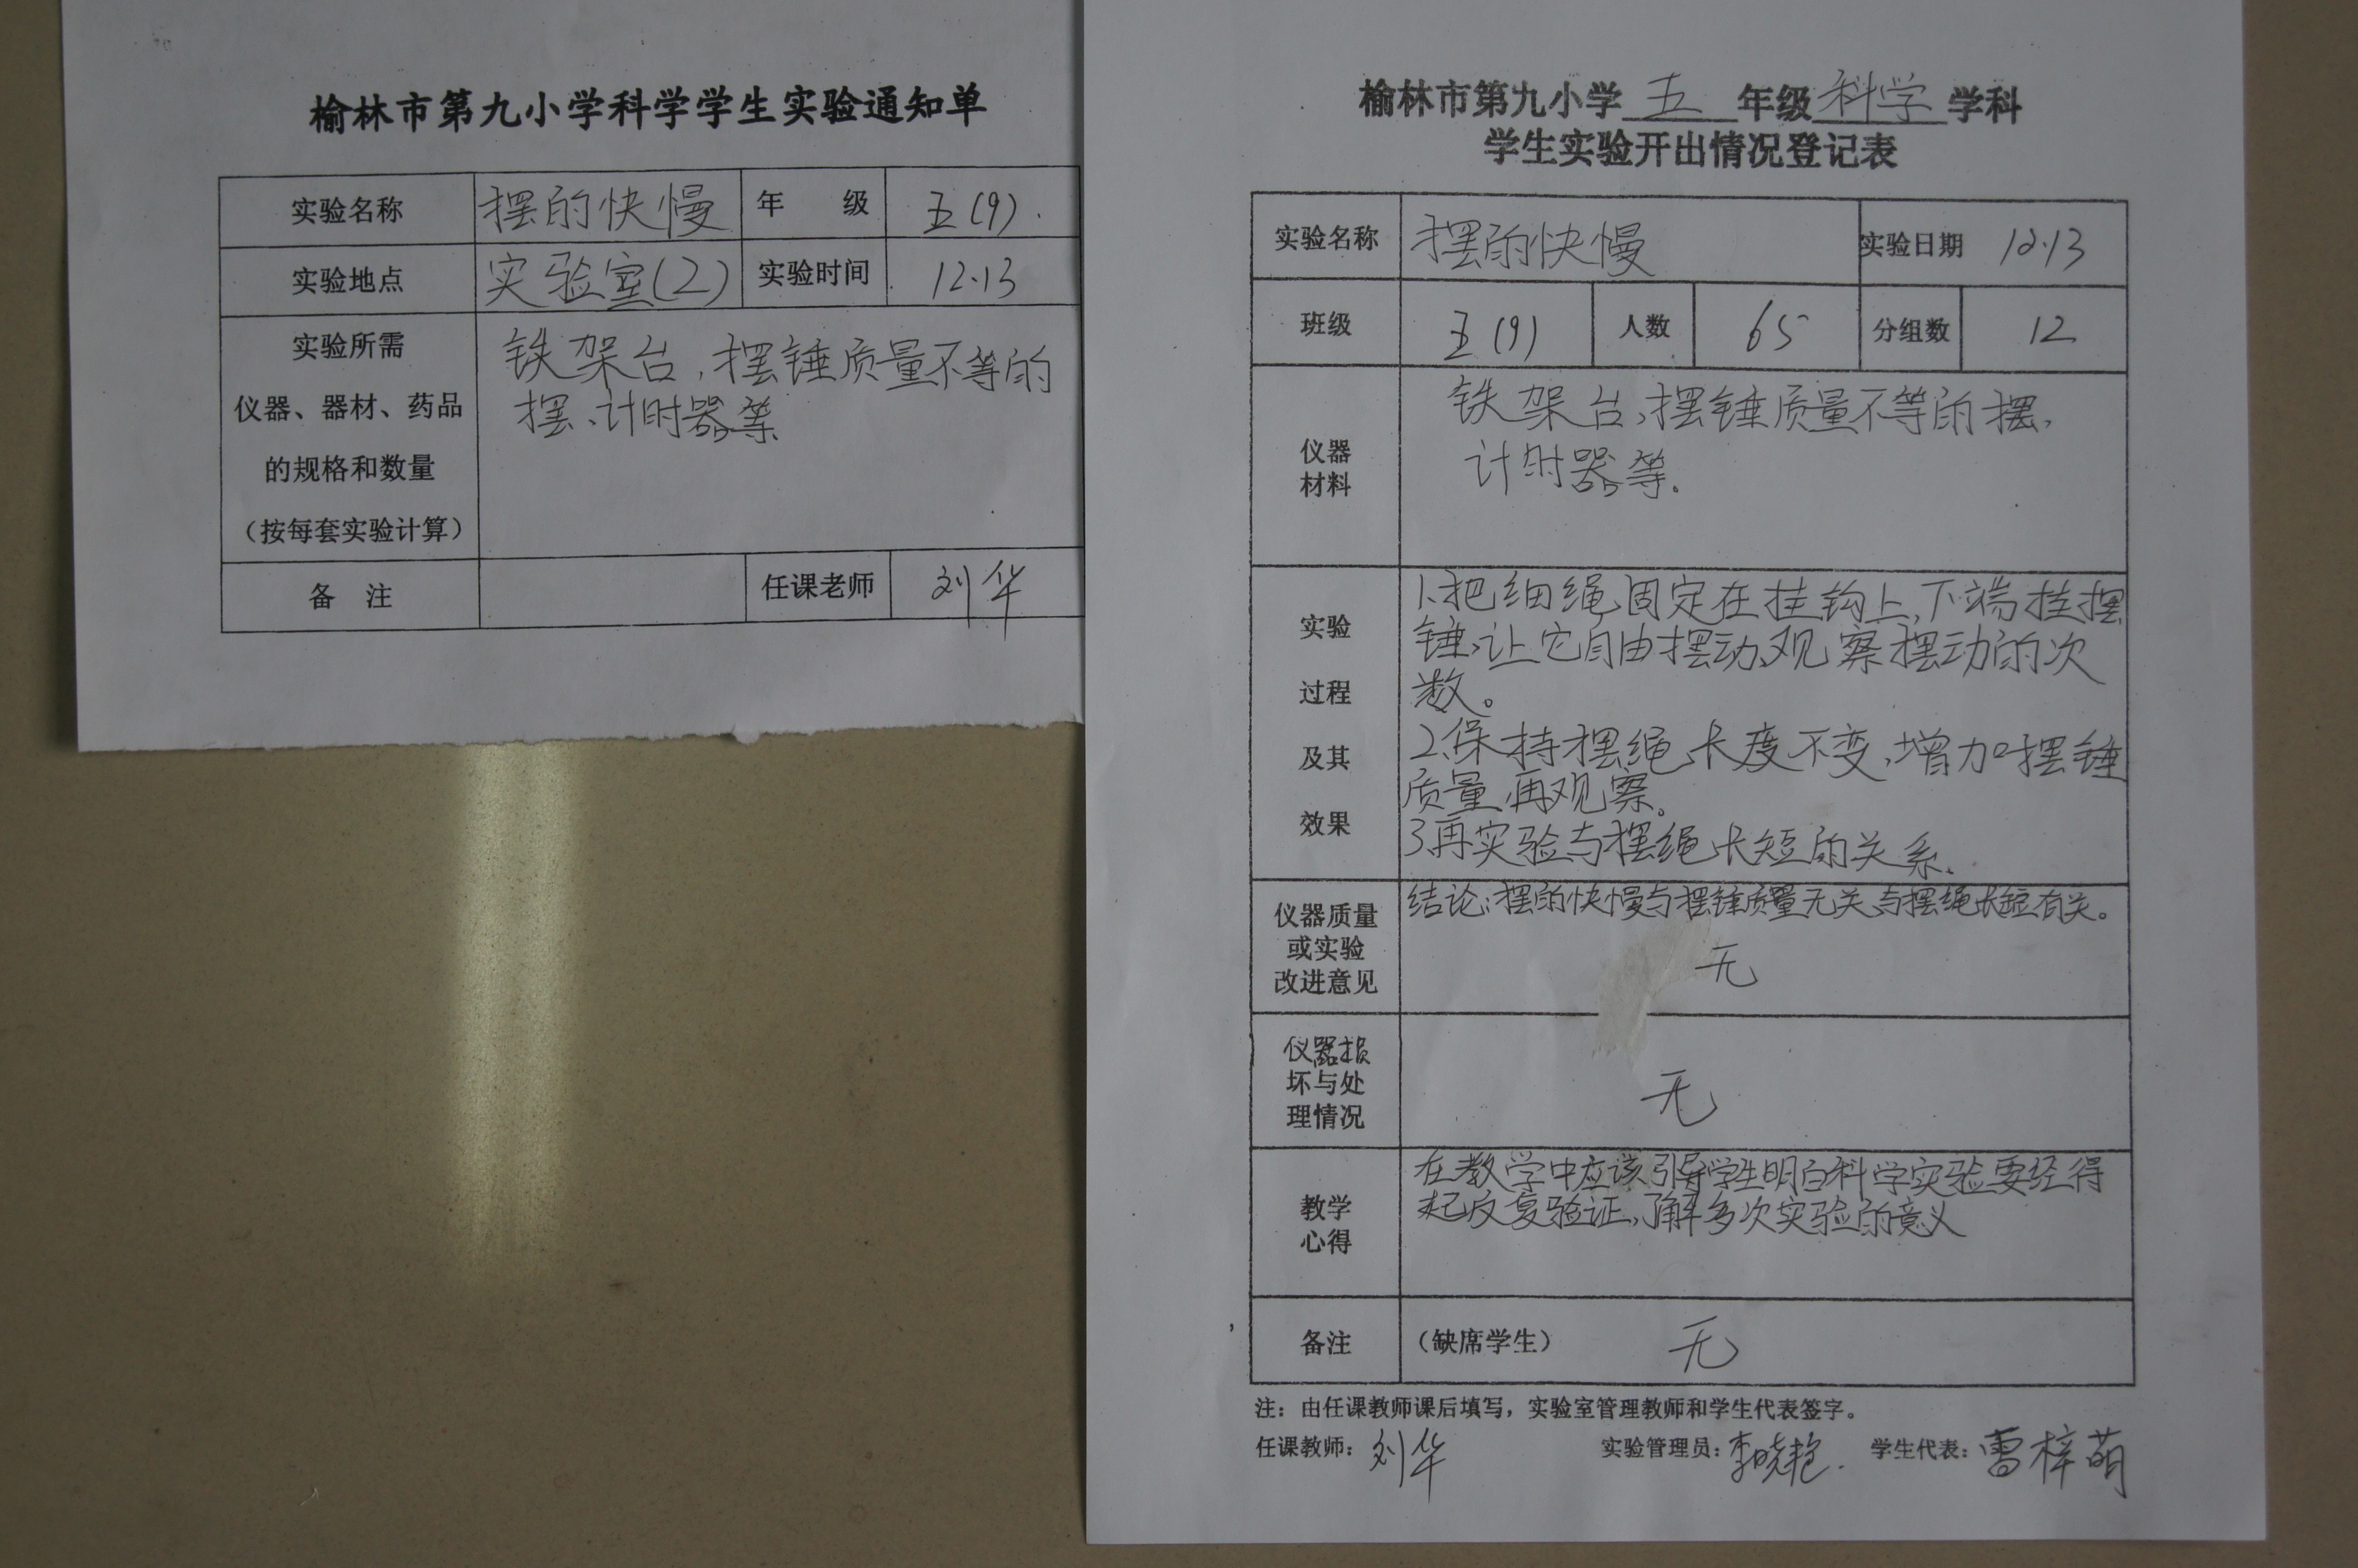 榆林市第九小学科学学生实验通知单
实验名称 摆的快慢 年 级 五(9).
实验地点 实验室(2) 实验时间 12.13
实验所需
仪器、器材、药品
的规格和数量
(按每套实验计算)
铁架台,摆锤质量不等的
摆、计时器等
备 注 任课老师 刘华
榆林市第九小学 五 年级 科学 学科
学生实验开出情况登记表
实验名称 摆的快慢 实验日期 12.13
班级 五(9) 人数 65 分组数 12
仪器
材料
铁架台,摆锤质量不等的摆,
计时器等.
实验
过程
及其
效果
1.把细绳固定在挂钩上,下端挂摆
锤,让它自由摆动,观察摆动的次
数。
2.保持摆绳长度不变,增加摆锤
质量,再观察。
3.再实验与摆绳长短的关系.
仪器质量
或实验
改进意见
结论:摆的快慢与摆锤质量无关与摆绳长短有关。
无
仪器损
坏与处
理情况
无
教学
心得
在教学中应该引导学生明白科学实验要经得
起反复验证,了解多次实验的意义
备注 (缺席学生) 无
注:由任课教师课后填写,实验室管理教师和学生代表签字。
任课教师:刘华 实验管理员:李晓艳. 学生代表:曹梓萌